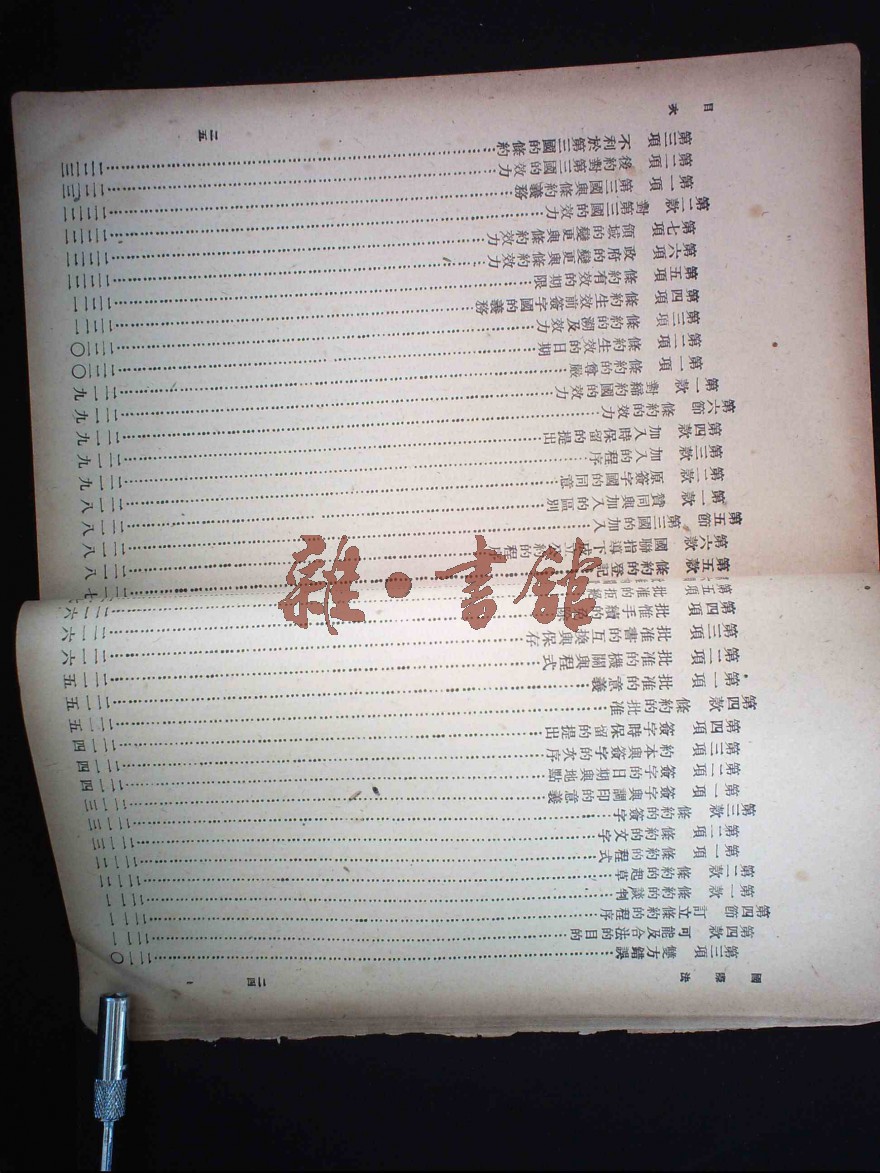 國際法
二四
第三項 雙方錯誤……二一〇
第四款 可能及合法的目的……二一一
第四節 訂立條約的程序……二一一
第一款 條約的談判……二一二
第二款 條約的起草……二一二
第一項 條約的程式……二一三
第二項 條約的文字……二一三
第三款 條約的簽字……二一三
第一項 簽字與調印的意義……二一四
第二項 簽字的日期與地點……二一四
第三項 約本與簽字的次序……二一四
第四項 簽字時保留的提出……二一五
第四款 條約的批准……二一五
第一項 批准的意義……二一五
第二項 批准的機關與程式……二一六
第三項 批准書的互換與保存……二一六
第四項 批准手續的……二一六
第五項 批准的拒絕……二一七
第五款 條約的登記……二一八
第六款 國聯指導下成立公約的程序……二一八
第五節 第三國的加入……二一八
第一款 贊同與加入的區別……二一八
第二款 原簽字國的同意……二一九
第三款 加入的程序……二一九
第四款 加入時保留的提出……二一九
第六節 條約的效力……二一九
第一款 對締約國的效力……二一九
第一項 條約的尊嚴……二二〇
第二項 條約生效的日期……二二〇
第三項 條約的溯及效力……二二一
第四項 條約生效前簽字國的義務……二二一
第五項 條約有效的期限……二二一
第六項 政府的變更與條約效力……二二二
第七項 領域的變更與條約效力……二二二
第二款 對第三國的效力……二二二
第一項 第三國與條約義務……二二三
第二項 後約對第三國的效力……二二三
第三項 不利於第三國的條約……二二三
目次
二五
雜·書館